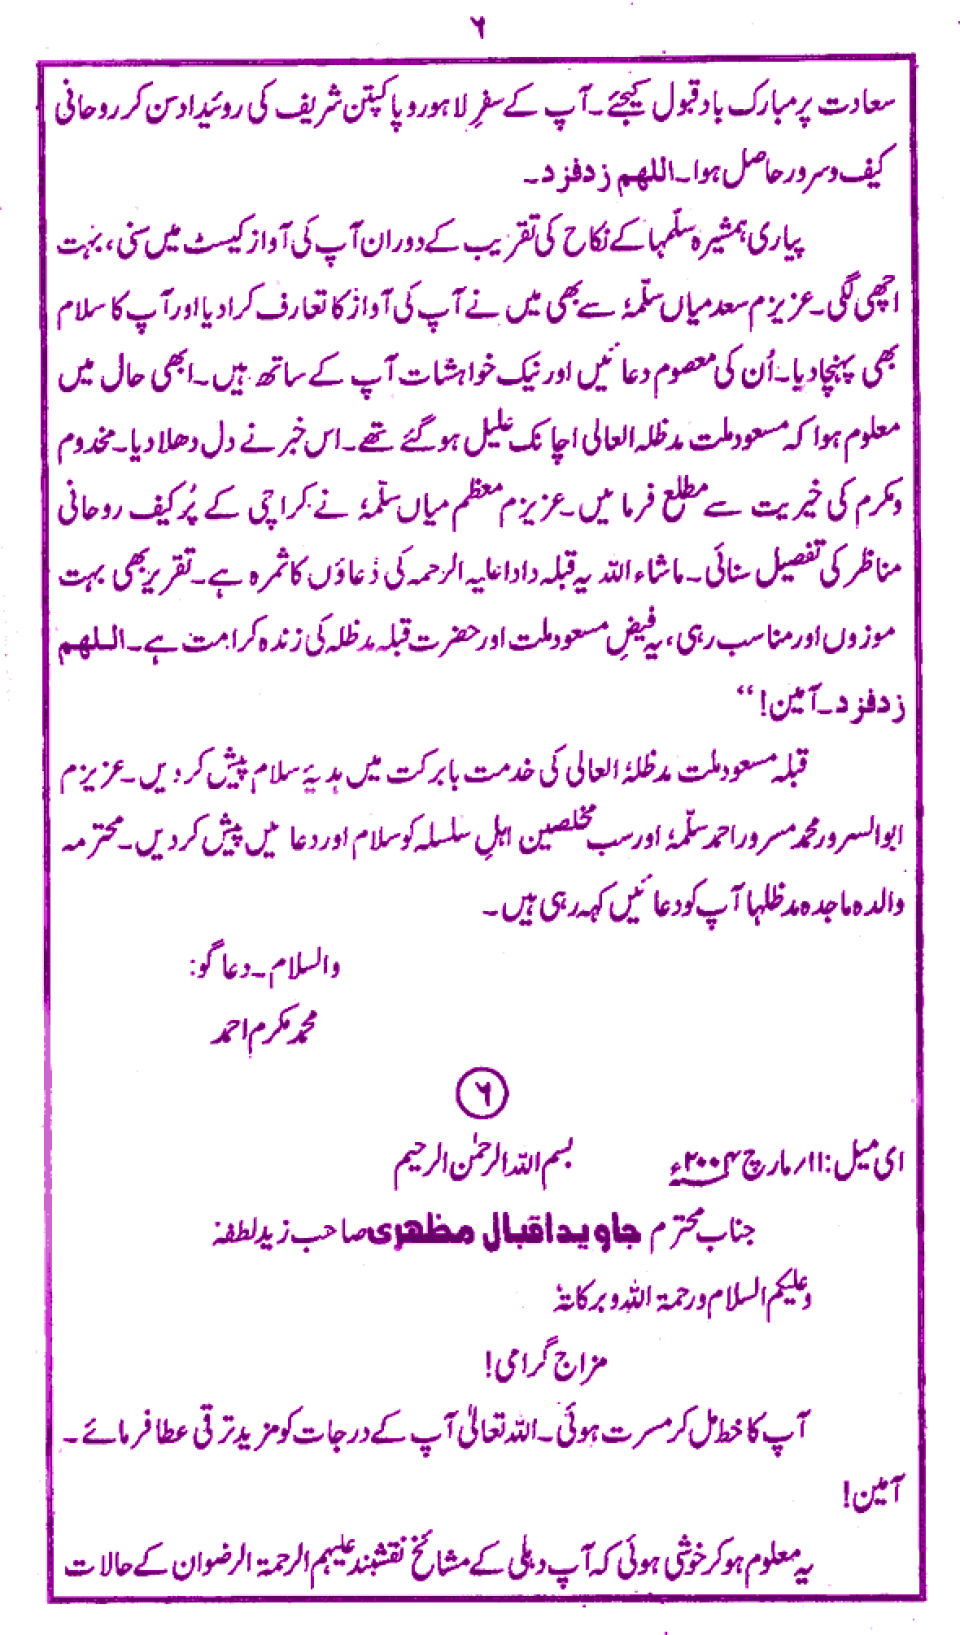 ۶
سعادت پر مبارک باد قبول کیجئے۔ آپ کے سفرِ لاہور و پاکپتن شریف کی روئیداد سن کر روحانی
کیف و سرور حاصل ہوا۔ اللھم زد فزد۔
پیاری ہمشیرہ سلّمہا کے نکاح کی تقریب کے دوران آپ کی آواز کیسٹ میں سنی، بہت
اچھی لگی۔ عزیزم سعد میاں سلّمہٗ سے بھی میں نے آپ کی آواز کا تعارف کرادیا اور آپ کا سلام
بھی پہنچا دیا۔ اُن کی معصوم دعائیں اور نیک خواہشات آپ کے ساتھ ہیں۔ ابھی حال میں
معلوم ہوا کہ مسعود ملت مدظلہ العالی اچانک علیل ہوگئے تھے۔ اس خبر نے دل دھلا دیا۔ مخدوم
و مکرم کی خیریت سے مطلع فرمائیں۔ عزیزم معظم میاں سلّمہٗ نے کراچی کے پُر کیف روحانی
مناظر کی تفصیل سنائی۔ ماشاء اللہ یہ قبلہ دادا علیہ الرحمہ کی دُعاؤں کا ثمرہ ہے۔ تقریر بھی بہت
موزوں اور مناسب رہی، یہ فیضِ مسعود ملت اور حضرت قبلہ مدظلہ کی زندہ کرامت ہے۔ اللھم
زد فزد۔ آمین!“
قبلہ مسعود ملت مدظلہٗ العالی کی خدمت بابرکت میں ہدیۂ سلام پیش کردیں۔ عزیزم
ابوالسرور محمد مسرور احمد سلّمہٗ اور سب مخلصین اہلِ سلسلہ کو سلام اور دعائیں پیش کردیں۔ محترمہ
والدہ ماجدہ مدظلہا آپ کو دعائیں کہہ رہی ہیں۔
والسلام۔ دعا گو:
محمد مکرم احمد
۶
ای میل: ۱۱/ مارچ ۲۰۰۴ء
بسم اللہ الرحمٰن الرحیم
جناب محترم جاوید اقبال مظھری صاحب زید لطفہٗ
وعلیکم السلام ورحمۃ اللہ وبرکاتہٗ
مزاج گرامی!
آپ کا خط مل کر مسرت ہوئی۔ اللہ تعالیٰ آپ کے درجات کو مزید ترقی عطا فرمائے۔
آمین!
یہ معلوم ہو کر خوشی ہوئی کہ آپ دہلی کے مشائخ نقشبند علیہم الرحمۃ الرضوان کے حالات